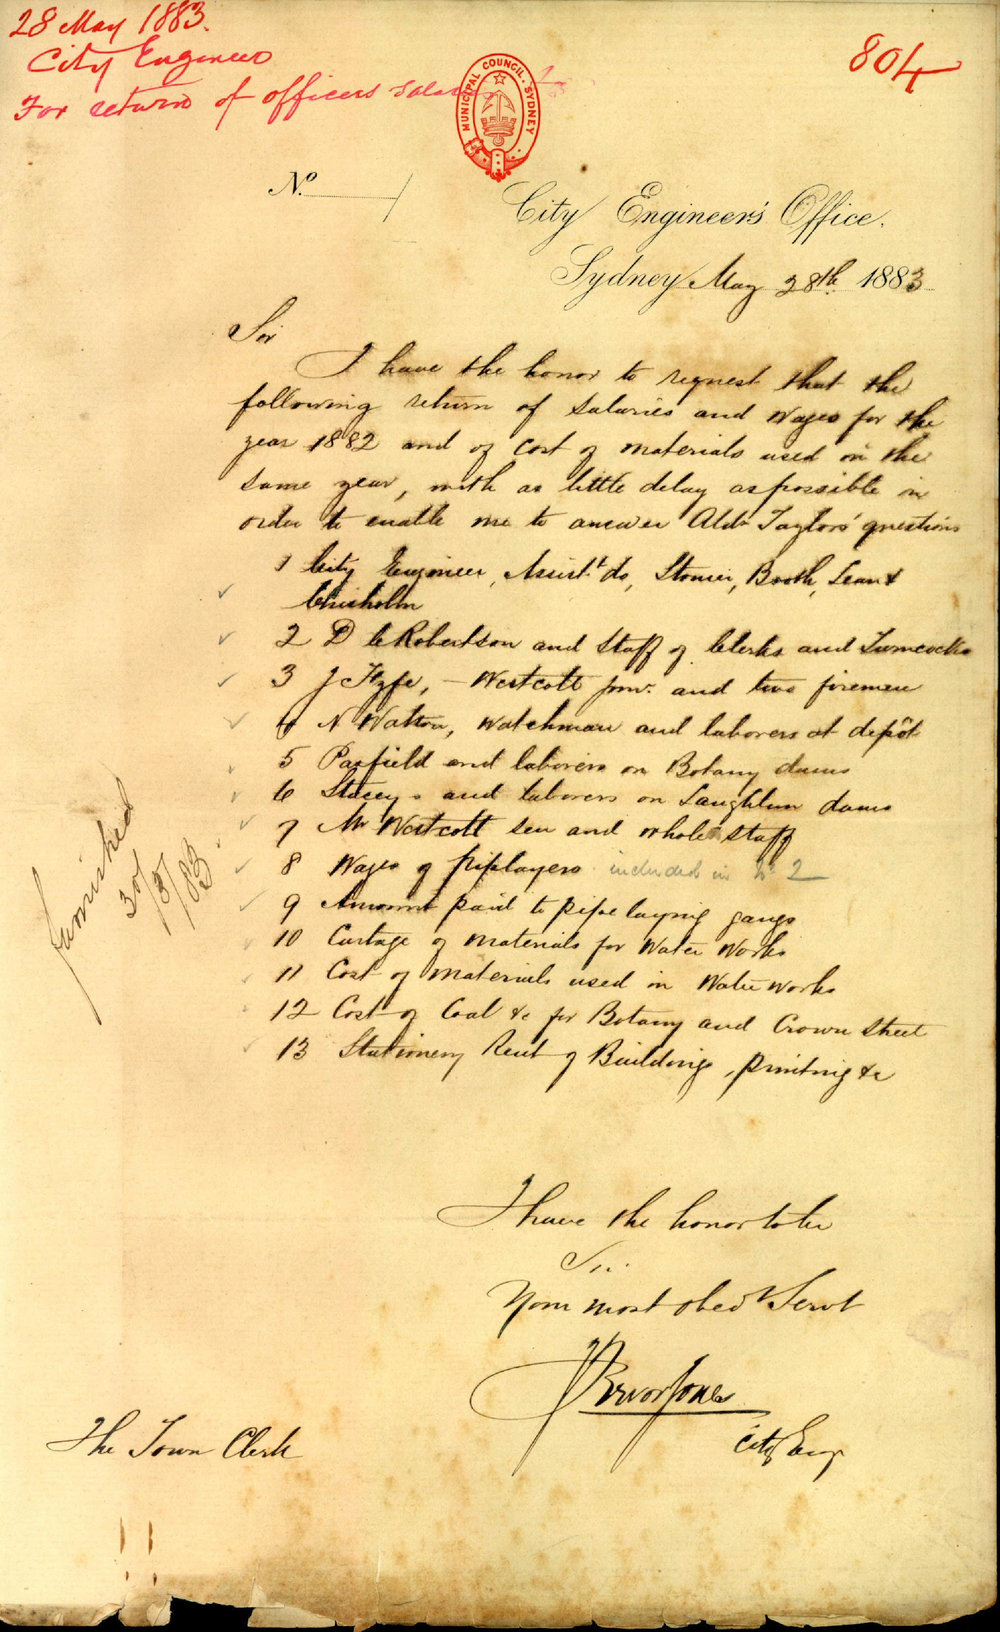 28 May 1883.
City Engineer
For return of officers salary
804
MUNICIPAL COUNCIL. SYDNEY
No.
City Engineer's Office.
Sydney May 28th 1883
Sir
I have the honor to request that the
following return of salaries and wages for the
year 1882 and of cost of materials used in the
same year, with as little delay as possible in
order to enable me to answer Aldn Taylors' questions
1 City Engineer, Assist.t do, Stonier, Booth, Lean &
Chisholm
2 D C Robertson and Staff of Clerks and Turncocks
3 J Fyfe, - Westcott junr. and two firemen
4 N Watton, Watchman and laborers at depôt
5 Parfield and laborers on Botany dams
6 Stacey - and laborers on Laughlin dams
7 Mr Westcott sen and whole staff
8 Wages of Pipelayers included in No 2
9 Amount paid to pipe laying gangs
10 Cartage of materials for Water Works
11 Cost of materials used in Water works
12 Cost of Coal &c for Botany and Crown Street
13 Stationery Rent of Buildings, printing &c
Furnished
30/5/83.
I have the honor to be
Sir.
Your most obedt Servt
City Eng
The Town Clerk